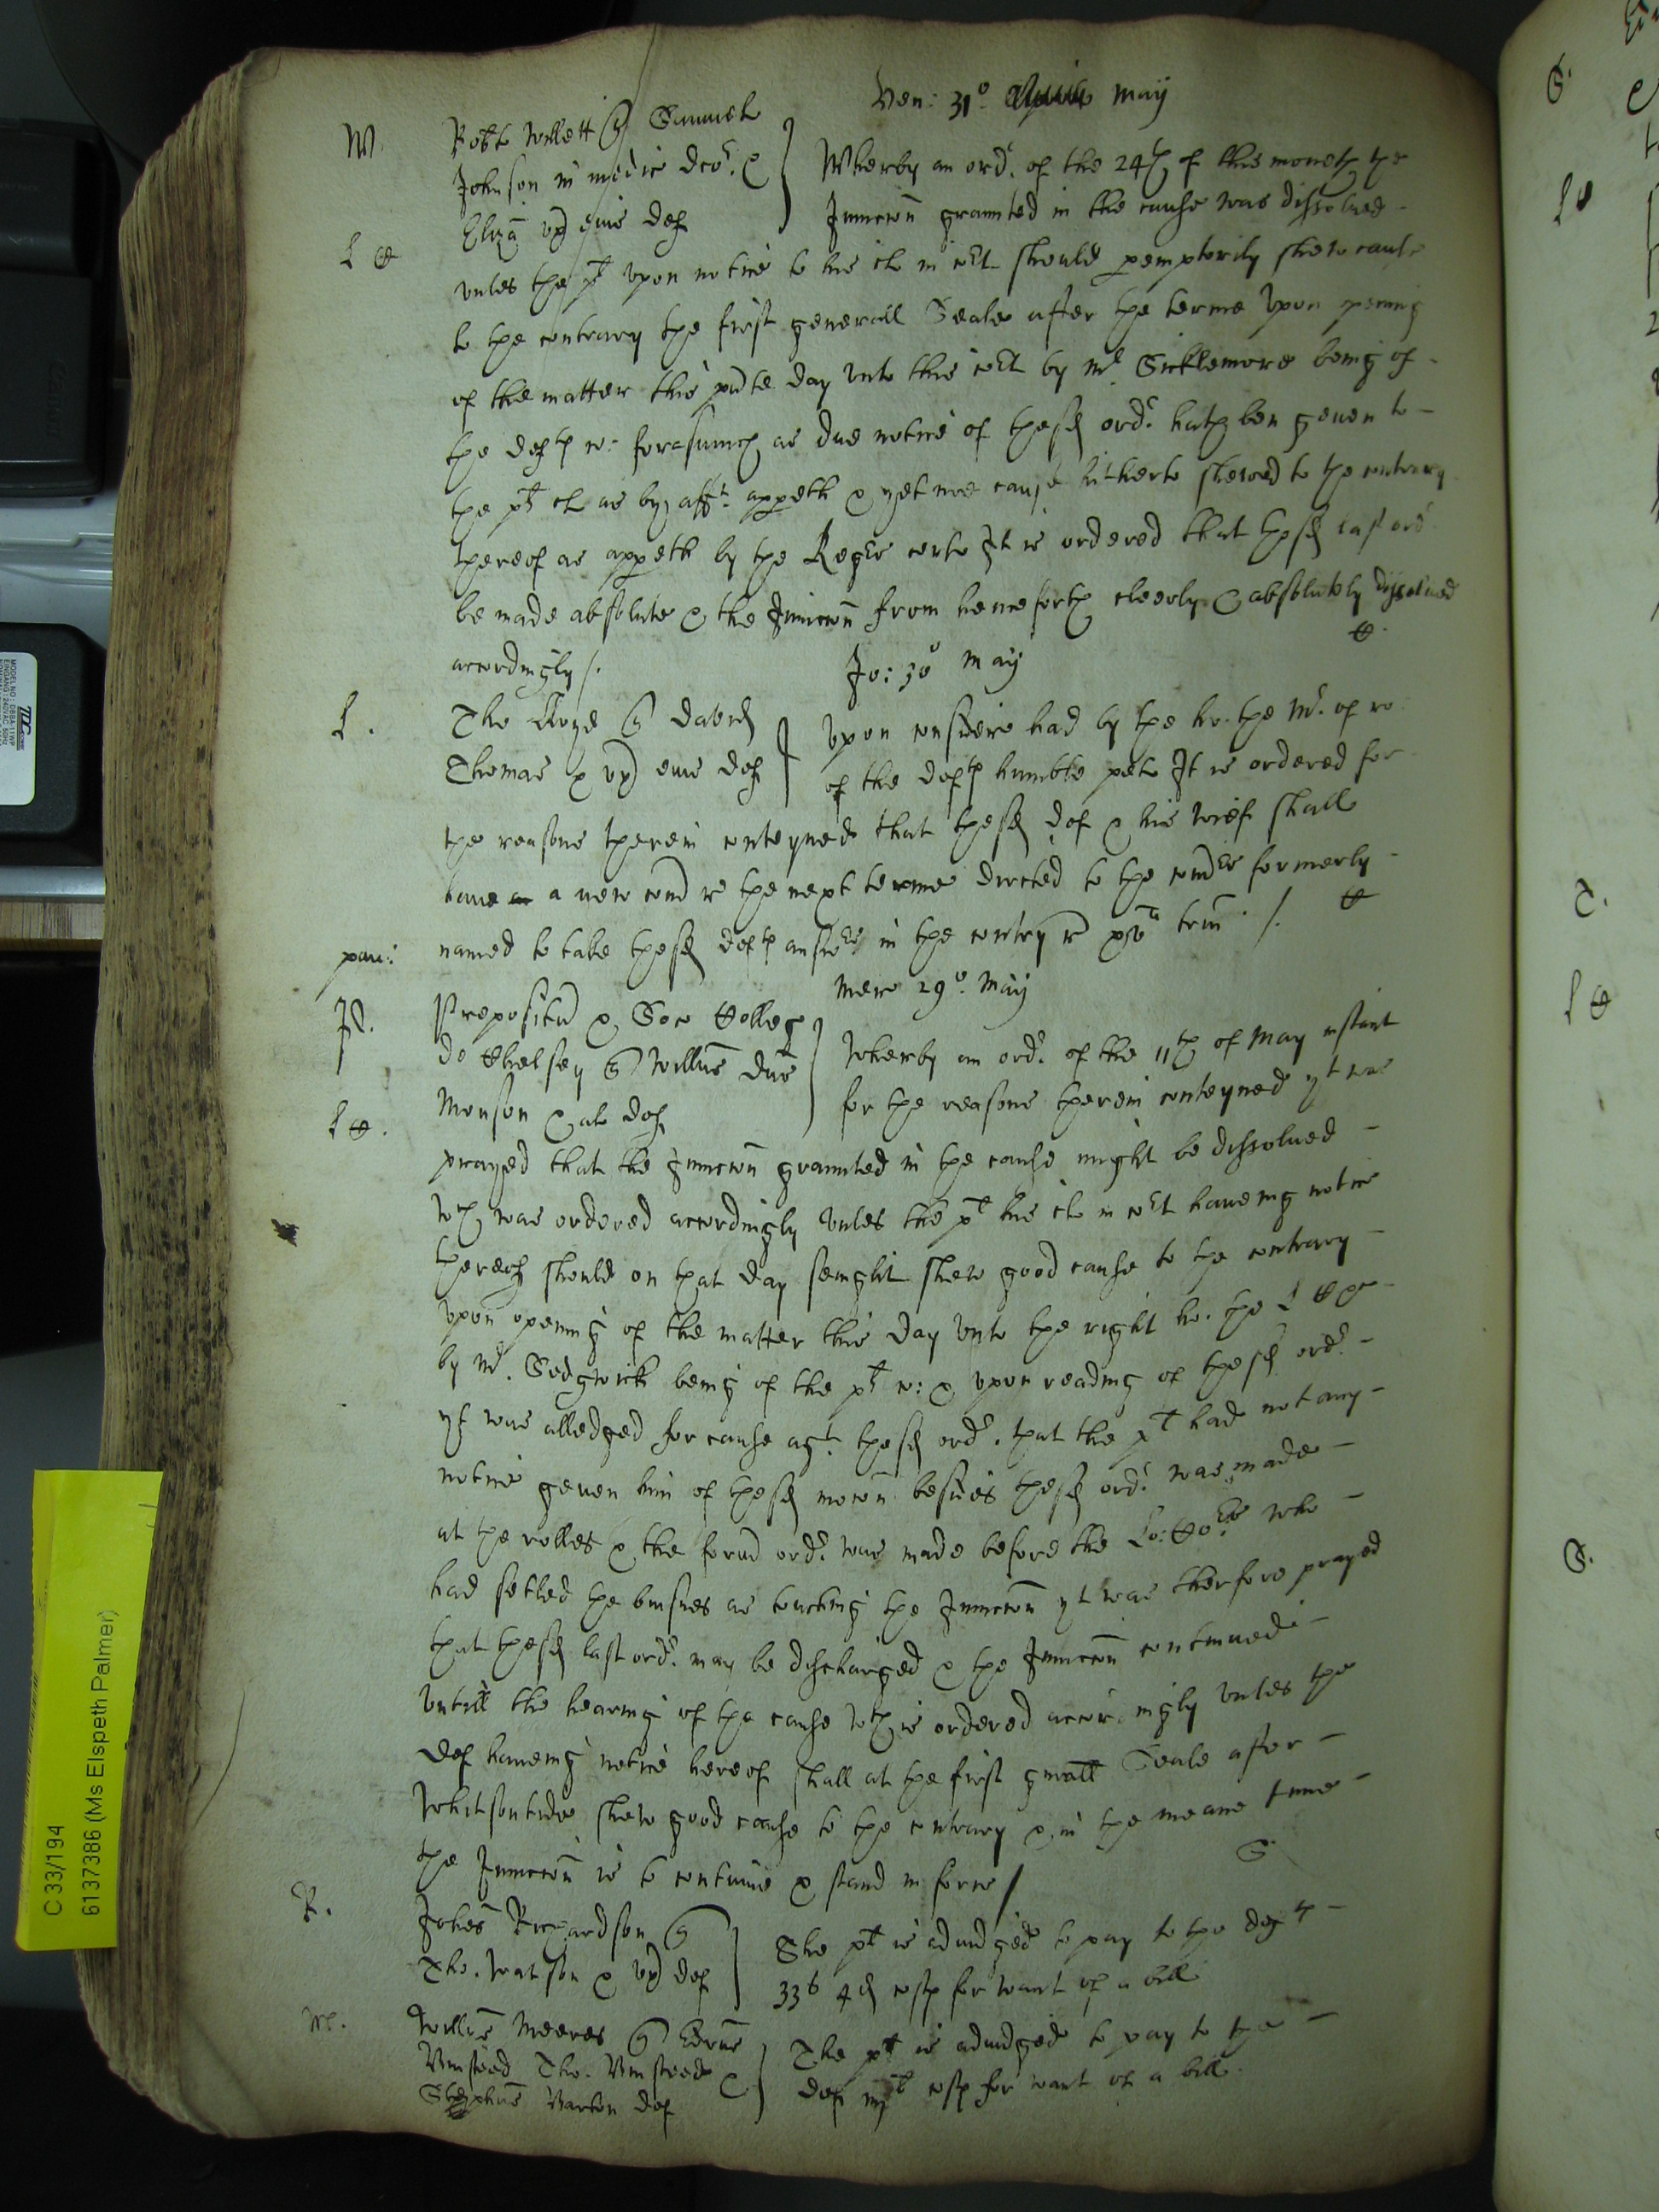 Ven: 31º May
W. Robte Willett Samuel
Johnson in medic dco^r &
Eliza ux eius def
Wherby an ord. of the 24th of this moneth the
Iniuncon graunted in the cause was dissolued
L C
vnles the plt vpon notice to his cl in cort should peremptorily shew cause
to the contrary the first generall Seale after the terme Vpon opening
of the matter this pnte day vnto this cort by Mr Sicklemore being of
the deftes c: forasmuch as due notice of the sd ord. hath ben geuen to
the plt cl as by afft appeth & yet noe cause hitherto shewed to the contrary
thereof as appeth by the Regrs certe It is ordered that the sd last ord.
be made absolute & the Iniuncon from henceforth cleerly & absolutely dissolued
accordingly /.
C.
Jo: 30º May
L. Tho Lloyd David
Thomas & ux eius def
Vpon consideracn had by the ho. the Mr. of ro
of the deftes humble peto It is ordered for
the reasons therein conteyned that the sd def & his wief shall
haue a new comd re the next terme directed to the comrs formerly
C
named to take the sd deftes answer in the contry re px^a trin /.
pau:
Mer 29º. May
Preposit & Soc Colleg
de Chelsey Willus dus
Monson & al def
Wherby an ord. of the 11th of May instant
for the reasons therein conteyned yt was
L C.
prayed that the Iniuncon graunted in the cause might be dissolued
wch was ordered accordingly vnles the plt his cl in cort haueing notice
thereof should on that day senight shew good cause to the contrary
vpon opening of the matter this day vnto the right ho. the L C
by Mr. Sedgwick being of the plt c: & vpon reading of the sd ord.
yt was alledged for cause agt. the sd ord. that the plt had not any
notice geuen him of the sd mocon besides the sd ord. was made
at the rolles & the formd ord. was made before the Lo: Cors who
had setled the busines as touching the Iniuncon yt was therfore prayed
that the sd last ord. may be discharged & the Iniuncon continued
vntill the hearing of the cause wch is ordered accordingly vnles the
def haueing notice hereof shall at the first gnall Seale after
Whitsontide shew good cause to the contrary & in the meane time
the Iniuncon is to continue & stand in force /
S
R. Johes Richardson
Tho. Watson & ux def
The plt is adiudged to pay to the deftes
33s 4d costes for want of a bill
M. Willus Meeres Edrus
Vmsteed Tho. Vmsteed &
Stephus Barton def
The plt is adiudged to pay to the
def costes for want of a bill
C 33/194
6137386 (Ms Elspeth Palmer)